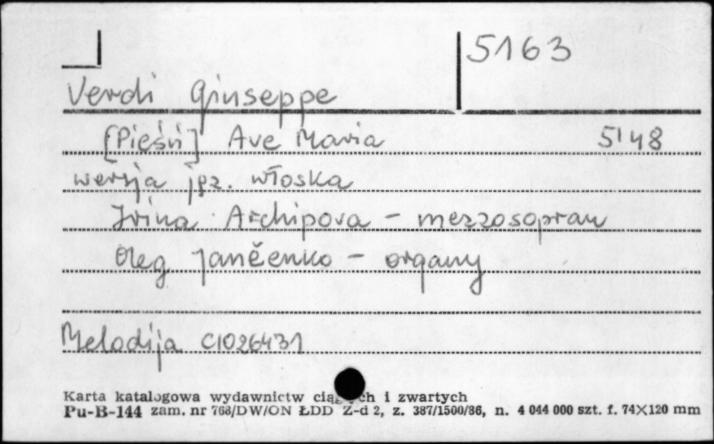 5163
Verdi Giuseppe
[Pieśń] Ave Maria 5'48
wersja jęz. włoska
Irina Archipova - mezzosopran
Oleg Jančenko - organy
Melodija C1026431
Karta katalogowa wydawnictw ciągłych i zwartych
Pu-B-144 zam. nr 768/DW/ON ŁDD Z-d 2, z. 387/1500/86, n. 4 044 000 szt. f. 74X120 mm